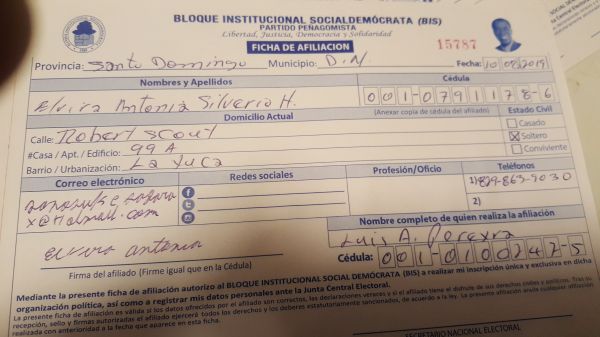 BLOQUE INSTITUCIONAL SOCIALDEMÓCRATA (BIS)
PARTIDO PEÑAGOMISTA
Libertad, Justicia, Democracia y Solidaridad
FICHA DE AFILIACION
15787
Provincia: Santo Domingo Municipio: D.N. Fecha: 10/08/2019
Nombres y Apellidos Cédula
Elvira Antonia Silverio H. 001-0791178-6
Domicilio Actual (Anexar copia de cédula del afiliado) Estado Civil
Calle: Robert Scout Casado
#Casa / Apt. / Edificio: 99 A Soltero
Barrio / Urbanización: La Yuca Conviviente
Correo electrónico Redes sociales Profesión/Oficio Teléfonos
1) 829-863-9030
x@Hotmail.com
2)
Nombre completo de quien realiza la afiliación
Luis A. Pereyra
elvira antonia
Cédula: 001-0100247-5
Firma del afiliado (Firme igual que en la Cédula)
Mediante la presente ficha de afiliación autorizo al BLOQUE INSTITUCIONAL SOCIALDEMÓCRATA (BIS) a realizar mi inscripción única y exclusiva en dicha
organización política, así como a registrar mis datos personales ante la Junta Central Electoral.
La presente ficha de afiliación es válida si los datos ofrecidos por el afiliado son correctos, las declaraciones veraces y si el afiliado tiene el disfrute de sus derechos civiles y políticos. Tras su
recepción, sello y firmas autorizadas el afiliado ejercerá todos los derechos y los deberes estatutariamente sancionados, de acuerdo a la ley. La presente afiliación anula cualquier otra afiliación
realizada con anterioridad a la fecha que aparece en esta ficha.
SECRETARIO NACIONAL ELECTORAL